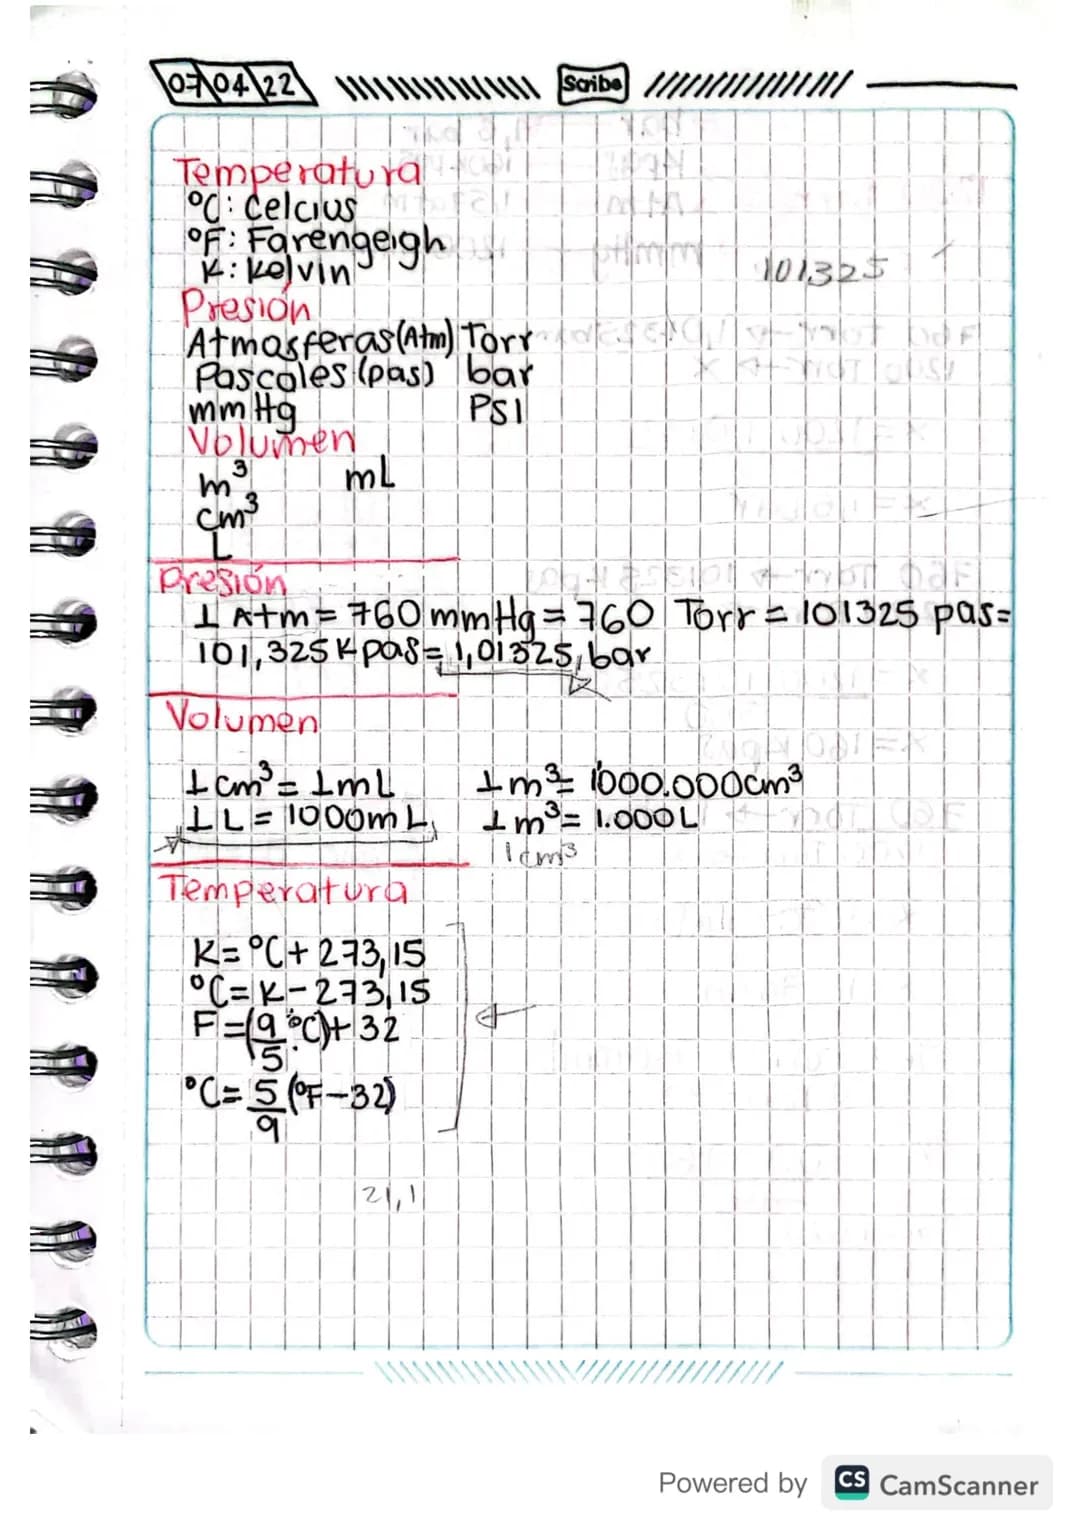 07 04 22
Scribe
Temperatura
°C: Celcius
°F: Farengeigh
K: Kelvin
101,325
Presión
Atmosferas (Atm) Torr
Pascales (pas) bar
mm Hg PSI
Volumen
m³ mL
cm³
L
Presión
1 Atm = 760 mmHg = 760 Torr = 101325 pas=
101,325 Kpas= 1,01325, bar
Volumen
1 cm³ = 1mL 1m³= 1000.000cm³
1L = 1000mL 1m³= 1.000L
1cm³
Temperatura
K= °C + 273,15
°C= K - 273,15
F =(9/5 · °C)+ 32
°C= 5/9 (°F-32)
21,1
Powered by CS CamScanner